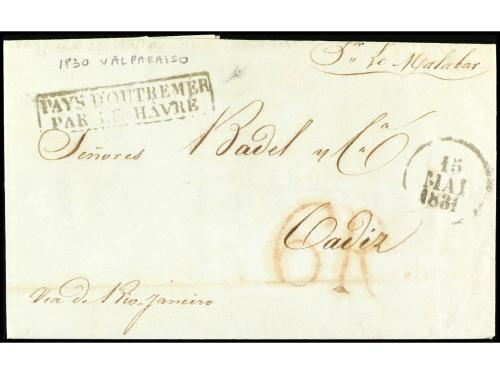 1830 VALPARAISO
Pr. Le Malabar
PAYS D'OUTREMER
PAR LE HÂVRE
Señores Badel y Ca.
15
MAI
1831
Cadiz
6R
Via de Rio-Janeiro